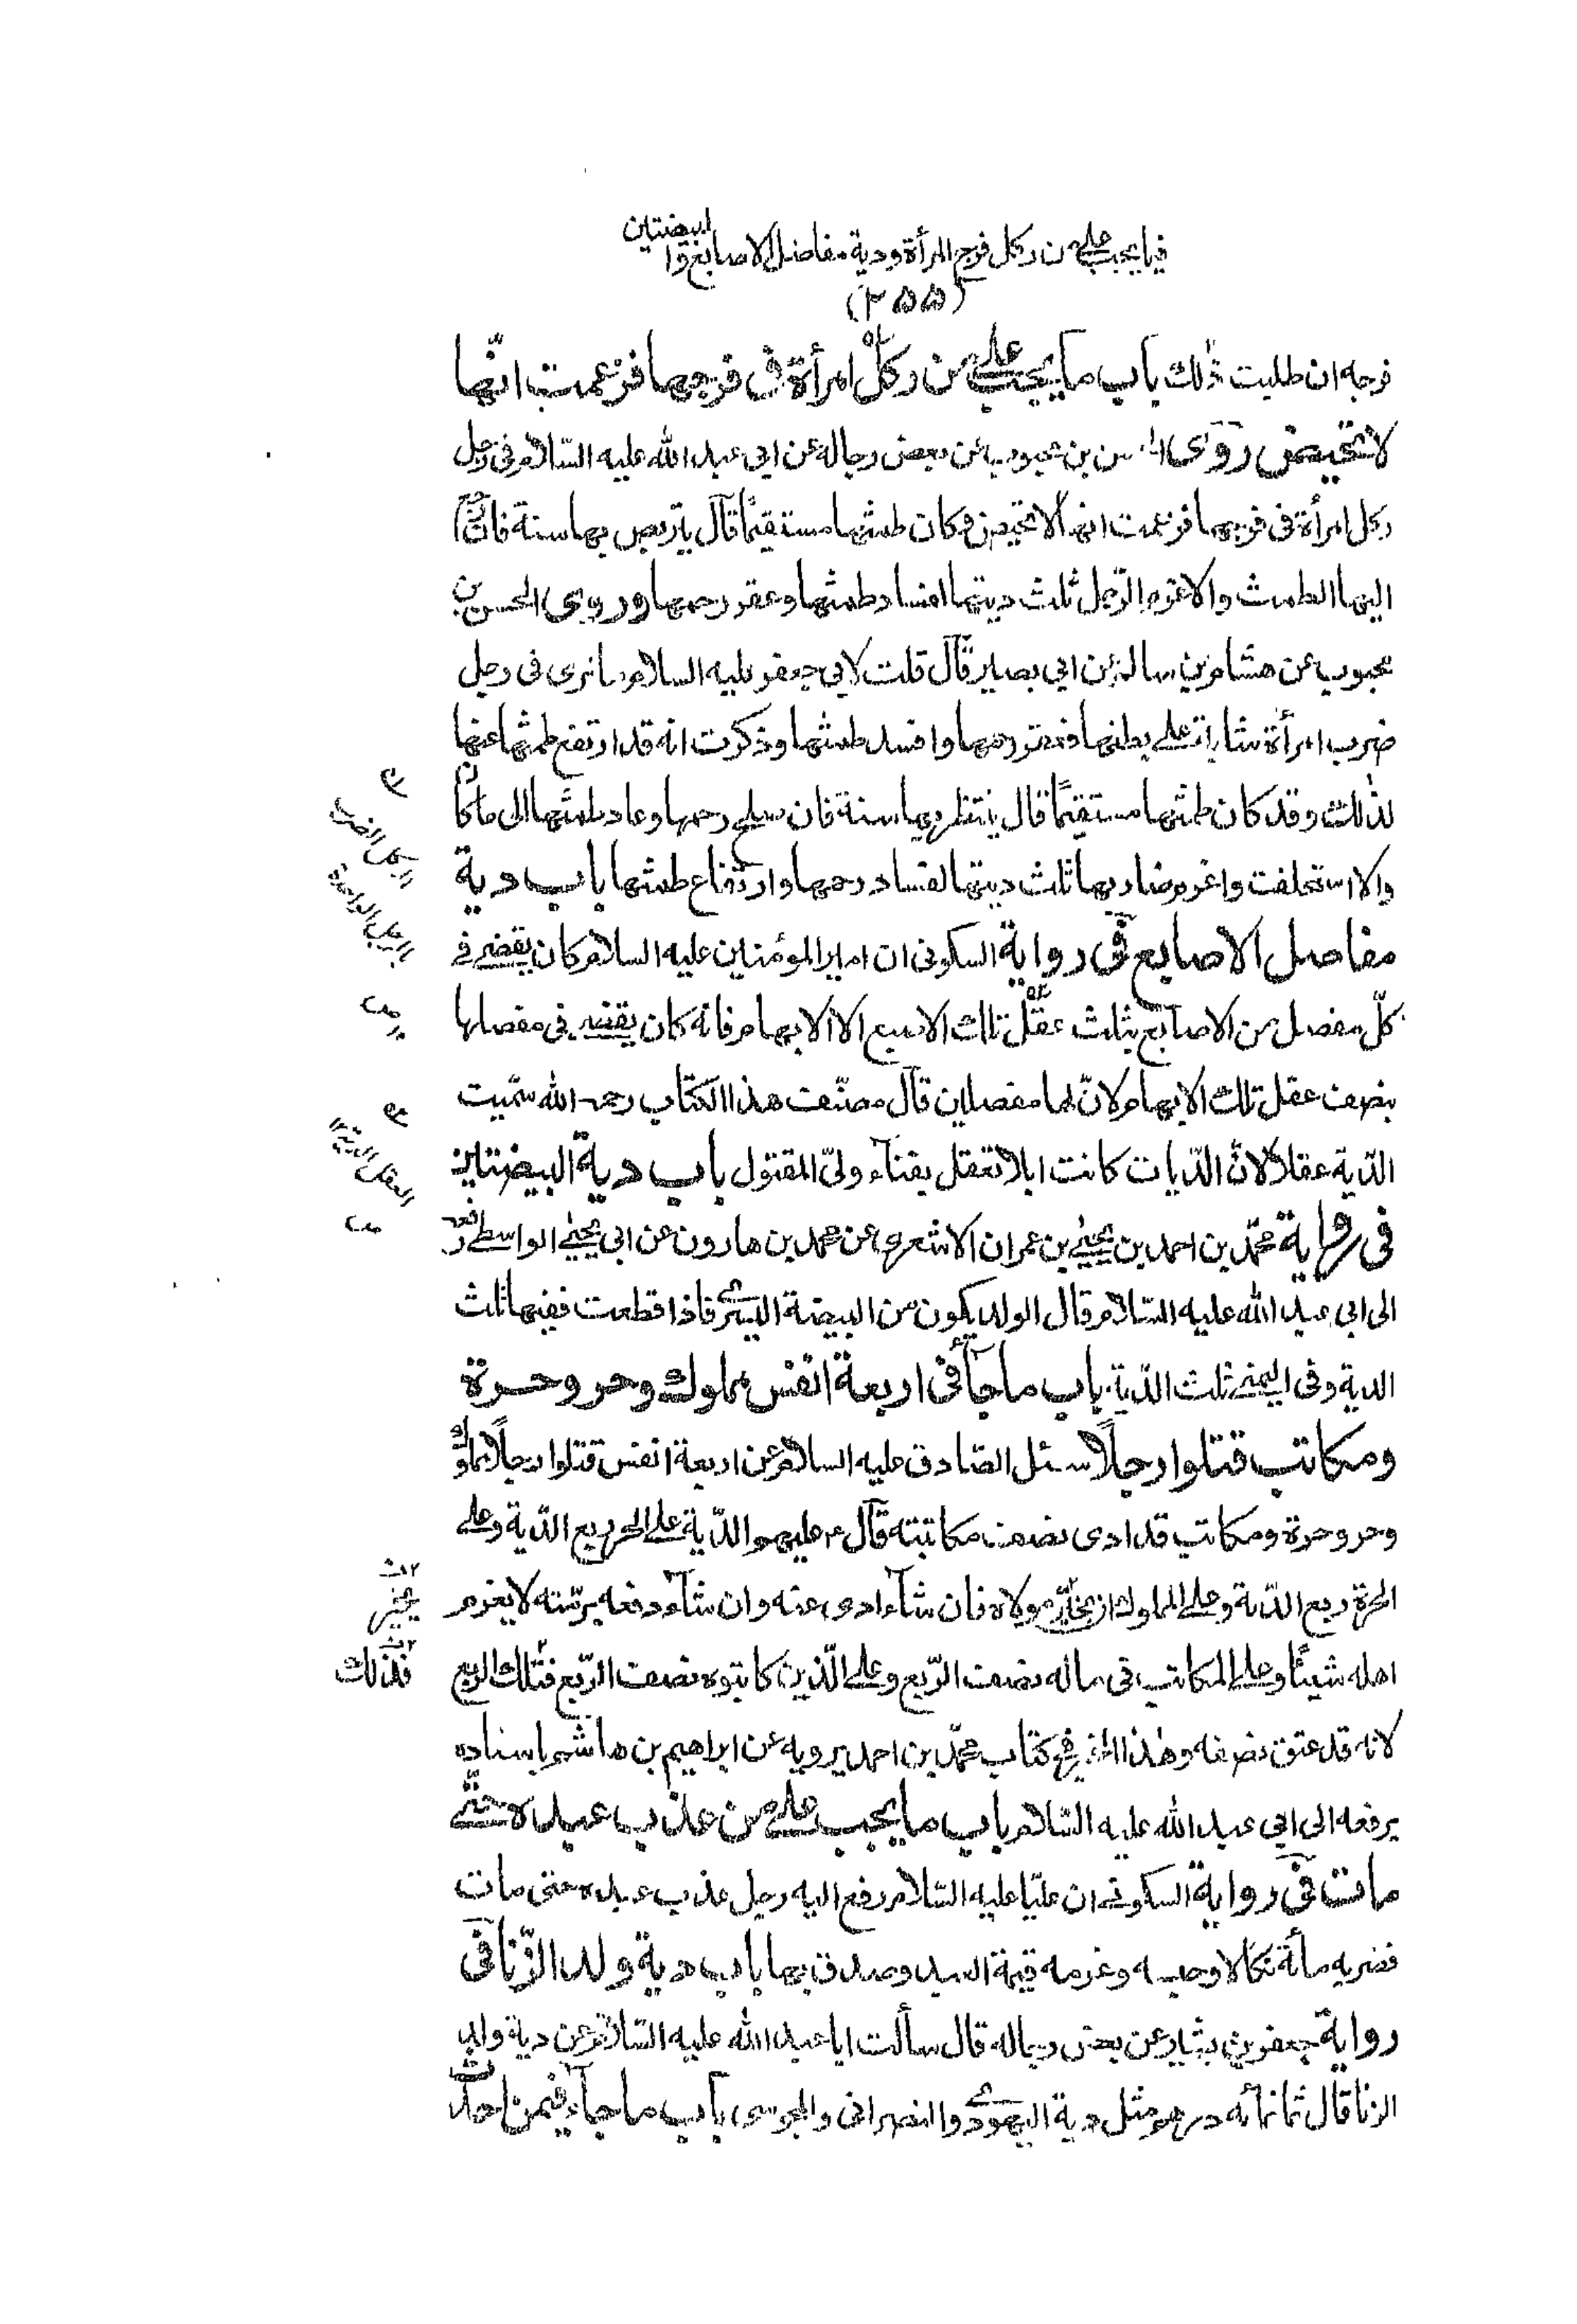 فيما يجب على من ركل فرج المرأة ودية مفاصل الاصابع والبيضتين
(٢٥٥)
فرجه ان طلبت ذلك باب ما يجب على من ركل امرأة فى فرجها فزعمت انّها
لا تحيض روى الحسن بن محبوب عن بعض رجاله عن ابى عبد الله عليه السّلام فى رجل
ركل امرأة فى فرجها فزعمت انها لا تحيض وكان طمثها مستقيمًا قال يتربص بها سنة فان رجع
اليها الطمث والا غرم الرّجل ثلث ديتها لفساد طمثها وعقر رحمها وروى الحسن بن
محبوب عن هشام بن سالم عن ابى بصير قال قلت لابى جعفر عليه السلام ما ترى فى رجل
ضرب امرأة شابة على بطنها فعقر رحمها وافسد طمثها وذكرت انه قد ارتفع طمثها عنها
لذلك وقد كان طمثها مستقيمًا قال ينتظر بها سنة فان صلح رحمها وعاد طمثها الى ما كان
والا استحلفت واغرم ضاربها ثلث ديتها لفساد رحمها وارتفاع طمثها باب دية
مفاصل الاصابع فى رواية السكونى ان امير المؤمنين عليه السلام كان يقضى فى
كلّ مفصل من الاصابع بثلث عقل تلك الاصبع الا الابهام فانه كان يقضى فى مفصلها
بنصف عقل تلك الابهام لانّ لها مفصلين قال مصنّف هذا الكتاب رحمه الله سمّيت
الدّية عقلا لانّ الدّيات كانت ابلا تعقل بفناء ولىّ المقتول باب دية البيضتين
فى رواية محمّد بن احمد بن يحيى بن عمران الاشعرى عن محمد بن هارون عن ابى يحيى الواسطى رفعه
الى ابى عبد الله عليه السّلام قال الولد يكون من البيضة اليسرى فاذا قطعت ففيها ثلث
الدية وفى اليمنى ثلث الدّية باب ما جآء فى اربعة انفس مملوك وحر وحرة
ومكاتب قتلوا رجلًا سئل الصّادق عليه السلام عن اربعة انفس قتلوا رجلًا مملوك
وحر وحرة ومكاتب قد ادى نصف مكاتبته قال ع عليهم الدّية على الحر ربع الدّية وعلى
الحرة ربع الدّية وعلى المملوك ان يخيّر مولاه فان شآء ادى عنه وان شآء دفعه برمّته لا يغرم
اهله شيئًا وعلى المكاتب فى ماله نصف الرّبع وعلى الّذين كاتبوه نصف الرّبع فتلك الربع
لانه قد عتق نصفه وهذا الخبر فى كتاب محمّد بن احمد يرويه عن ابراهيم بن هاشم باسناده
يرفعه الى ابى عبد الله عليه السّلام باب ما يجب على من عذب عبده حتّى
مات فى رواية السكونى ان عليّا عليه السّلام رفع اليه رجل عذب عبده حتى مات
فضربه مائة نكالا وحبسه وغرمه قيمة العبد وصدق بها باب دية ولد الزّنا فى
رواية جعفر بن بشير عن بعض رجاله قال سألت ابا عبد الله عليه السّلام عن دية ولد
الزنا قال ثمانمأئه درهم مثل دية اليهودى والنصرانى والمجوسى باب ما جآء فيمن احدث
الركل الضرب
بالرجل الواحدة
ص
العقل الدية
ص
يخير
فذلك